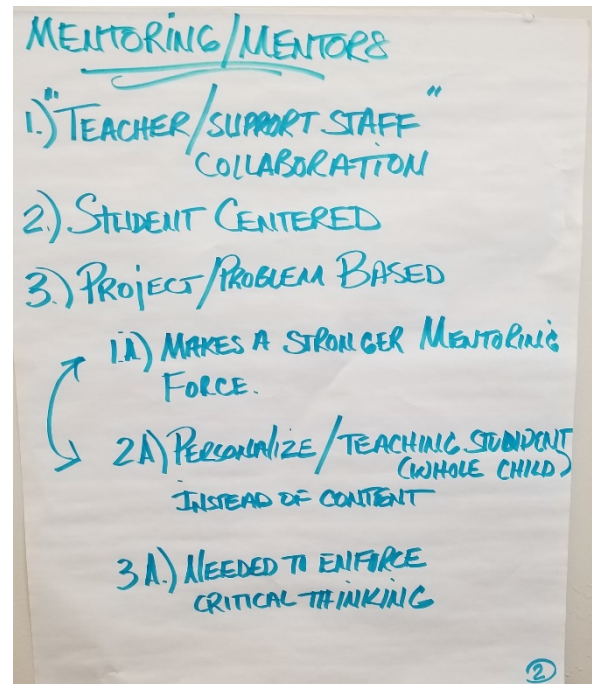 MENTORING/MENTORS
1.) "TEACHER/SUPPORT STAFF"
COLLABORATION
2.) STUDENT CENTERED
3.) PROJECT/PROBLEM BASED
1.A) MAKES A STRONGER MENTORING
FORCE.
2A) PERSONALIZE/TEACHING STUDENT
(WHOLE CHILD)
INSTEAD OF CONTENT
3A.) NEEDED TO ENFORCE
CRITICAL THINKING
2